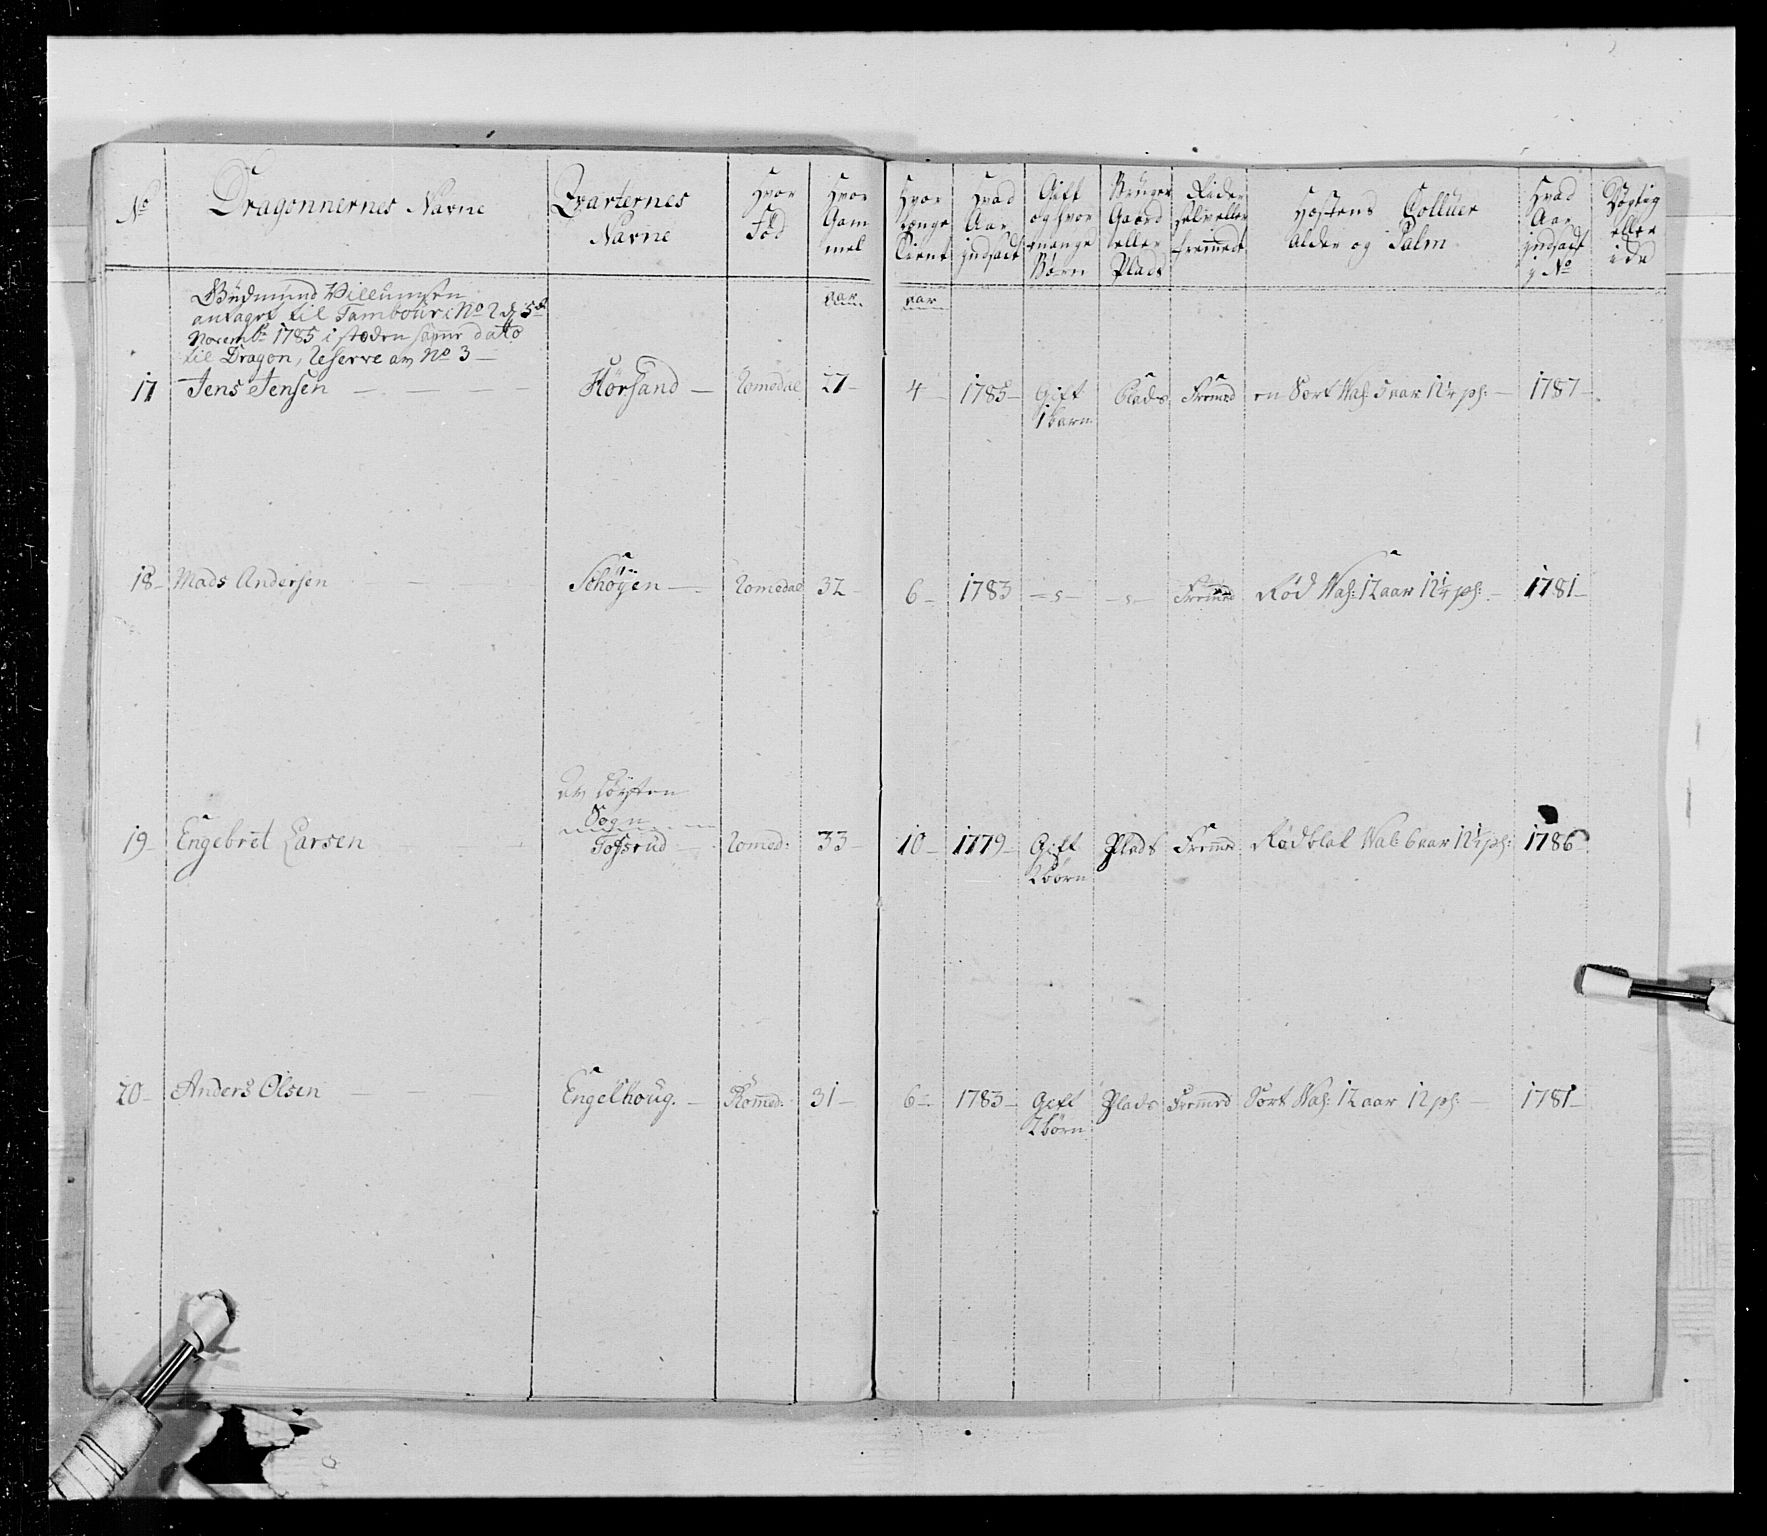 No
Dragonnernes Navne
Qvarternes
Navne
Hvor
Fød
Hvor
Gam
mel
Hvor
længe
Tient
Hvad
Aar
indsadt
Gift
og hvor
mange
Børn
Bruger
Gaard
eller
Plads
Rider
selv eller
fremmed
Hæstens Colluer
Alder og Palm
Hvad
Aar
indsadt
i No
Døgtig
eller
Gudmund Villumsen
antaget til Tambour i No 2 d 5te
Novembr 1785 i stæden samme dato
til Dragon, Reserve av No 3
aar
aar
17 Jens Jensen Hörsand Romedal 27 4 1785 Gift Plads Fremed en Sort Val: 5 aar 12¼ ph: 1787
1 barn
18 Mads Andersen Schöyen Romedal 32 6 1783 - s - - s - Fremed Rød Val: 12 aar 12¼ ph: 1781
av Löyten
Sogn
19 Engebret Larsen Tofsrud Romed: 33 10 1779 Gift Plads Fremed Rødblat Val: 6 aar 12½ ph: 1786
2 børn
20 Anders Olsen Engelhoug. Romed: 31 6 1783 Gift Plads Fremed Sort Val: 12 aar 12 ph: 1781
2 børn